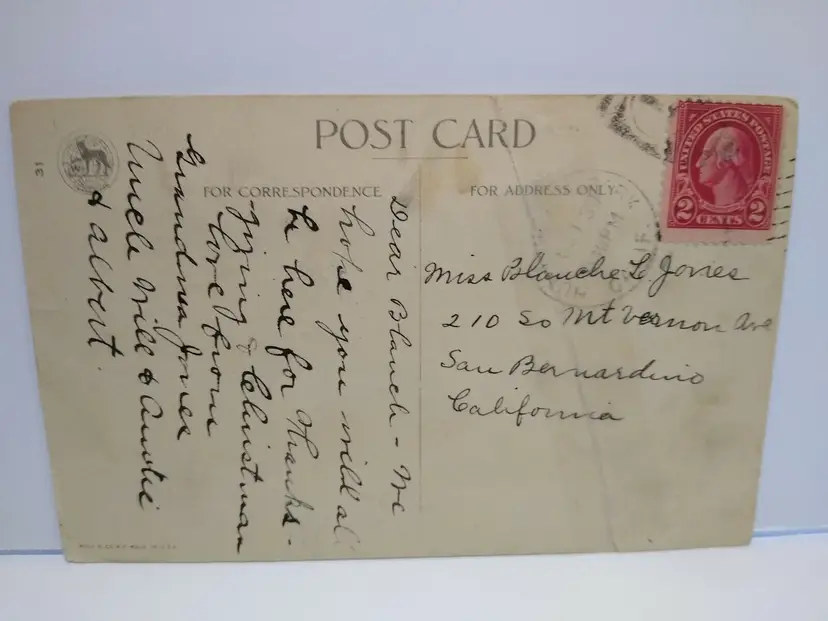 POST CARD
FOR CORRESPONDENCE
FOR ADDRESS ONLY
31
UNITED STATES POSTAGE
2 CENTS 2
Dear Blanch - We
hope you will al
be here for Thanks-
giving & Christmas
love from
Grandma Jones
Uncle Will & Auntie
& Albert.
Miss Blanche L Jones
210 So Mt Vernon Ave
San Bernardino
California